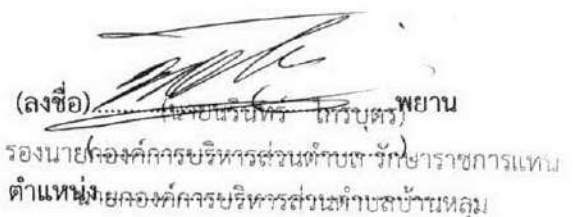 (ลงชื่อ)..........................พยาน
(นายนรินทร์ ไกรบุตร)
รองนายกองค์การบริหารส่วนตำบล รักษาราชการแทน
ตำแหน่ง นายกองค์การบริหารส่วนตำบลบ้านหลุม